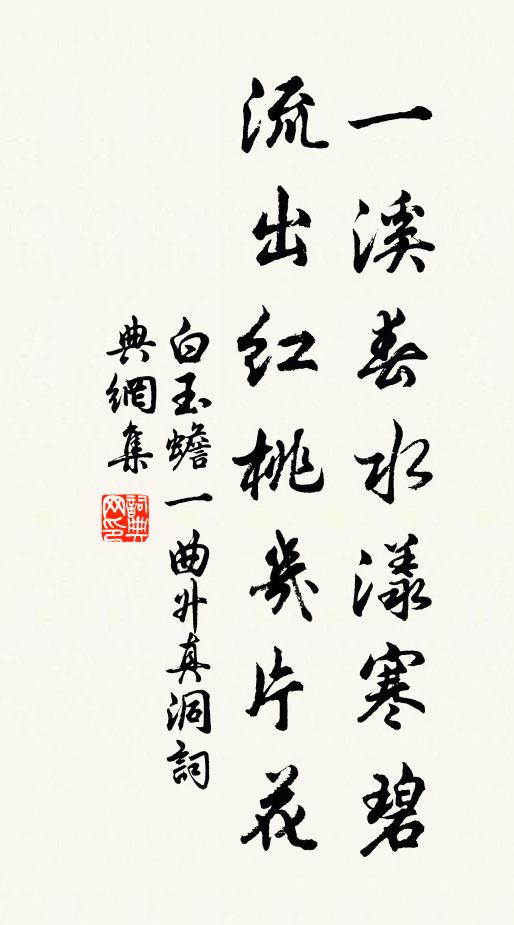 一溪春水漾寒碧
流出紅桃幾片花
白玉蟾一曲升真洞詞
典網集
詞典
网印